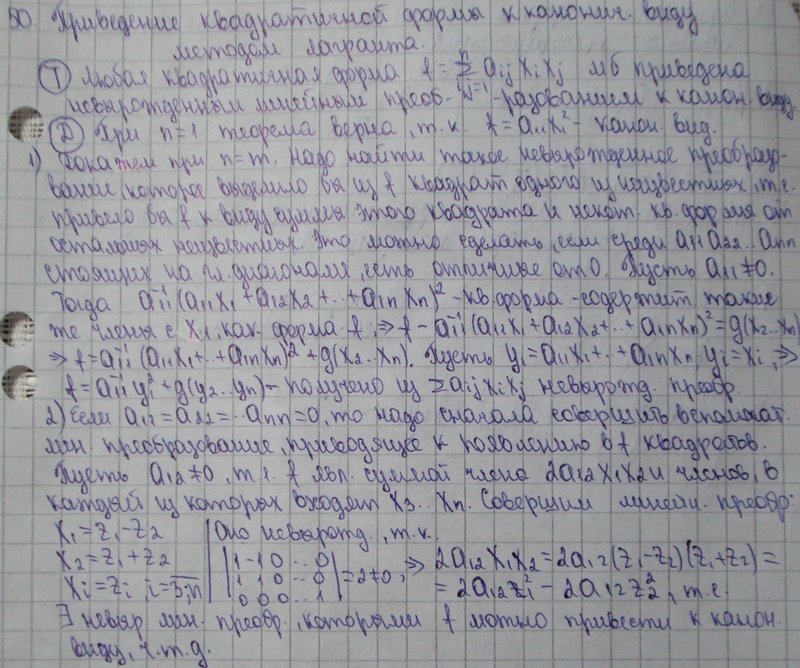 50. Приведение квадратичной формы к канонич. виду
методом лагранжа.
Т Любая квадратичная форма f = n Σ i,j=1 aij xi xj мб приведена
невырожденным линейным преоб- -разованием к канон. виду.
Д При n=1 теорема верна, т.к. f = a11x1² - канон. вид.
1) Покажем при n=m. Надо найти такое невырожденное преобразо-
вание, которое выделило бы из f квадрат одного из неизвестных, т.е.
привело бы f к виду суммы этого квадрата и некот. кв. форма от
остальных неизвестных. Это можно сделать, если среди a11 a22 .. ann
стоящих на гл. диагонали, есть отличные от 0. Пусть a11 ≠ 0.
Тогда a11⁻¹(a11x1 + a12x2 + .. + a1n xn)² - кв. форма - содержит такие
же члены с x1, как форма f, ⇒ f - a11⁻¹(a11x1 + a12x2 + .. + a1n xn)² = g(x2..xn)
⇒ f = a11⁻¹(a11x1 + .. + a1n xn)² + g(x2..xn). Пусть y1 = a11x1 + .. + a1n xn, yi = xi, ⇒
f = a11⁻¹ y1² + g(y2..yn) - получено из Σaij xi xj невырожд. преобр.
2) Если a11 = a22 = .. ann = 0, то надо сначала совершить вспомогат.
лин. преобразование, приводящее к появлению в f квадратов.
Пусть a12 ≠ 0, т.е. f явл. суммой члена 2a12x1x2 и членов, в
каждый из которых входят x3 .. xn. Совершим линейн. преобр:
x1 = z1 - z2 | Оно невырожд., т.к.
x2 = z1 + z2 | |1 -1 0 .. 0| ⇒ 2a12x1x2 = 2a12(z1 - z2)(z1 + z2) =
xi = zi, i = 3;n | |1 1 0 .. 0| = 2 ≠ 0, = 2a12z1² - 2a12z2², т.е.
|0 0 0 .. 1|
∃ невыр. лин. преобр., которыми f можно привести к канон.
виду, ч.т.д.